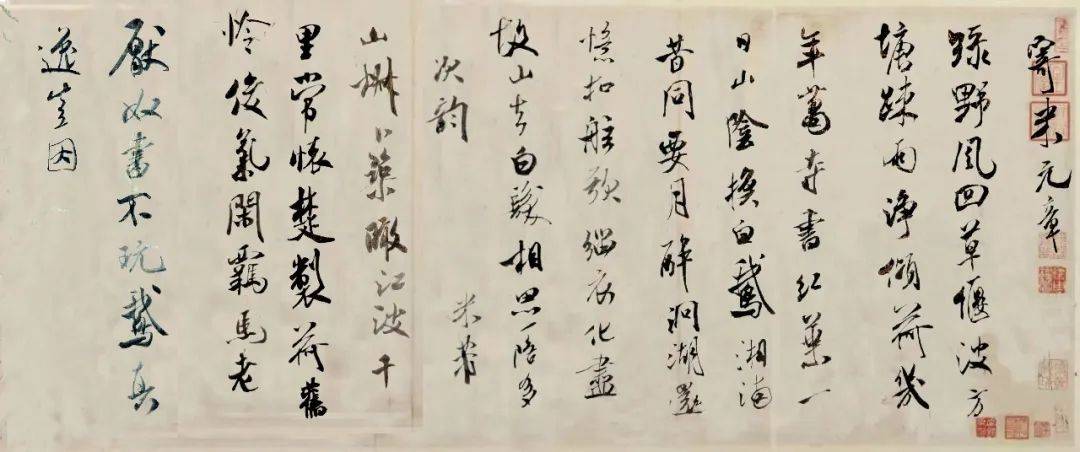 寄米元章
綠野風回草偃波方
塘踈雨淨傾荷幾
年蕭寺書紅葉一
日山陰換白鵝湘浦
昔同要月醉洞湖還
憶扣舷歌緇衣化盡
故山去白髮相思一倍多
次韵 米芾
山卜築瞰江波千
里常懷楚製荷舊
怜俊氣閑羈馬老
厭奴書不玩鵝真
逸豈因